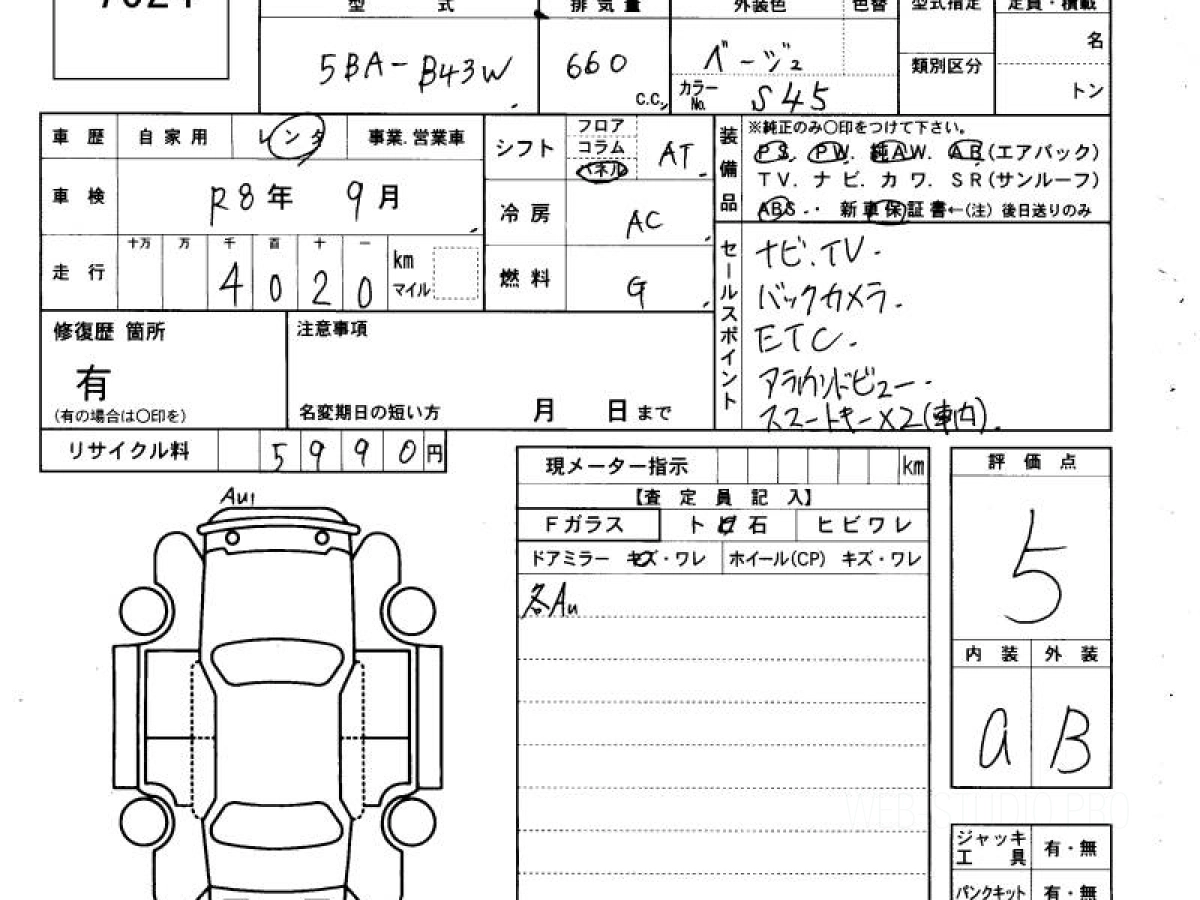 型 式 排 気 量 外装色 色替 型式指定 定員・積載
5BA-B43W 660 C.C. ベージュ 名
カラーNo. S45 類別区分 トン
車 歴 自 家 用 レ ン タ 事業.営業車 シフト フロア コラム パネル AT 装備品 ※純正のみ〇印をつけて下さい。
PS. PW. 純AW. AB(エアバック)
TV. ナ ビ. カ ワ. SR(サンルーフ)
車 検 R8年 9月 冷 房 AC ABS.・ 新 車 保 証 書←(注) 後日送りのみ
十万 万 千 百 十 一
走 行 4 0 2 0 km マイル 燃 料 G
セールスポイント ナビ.TV.
バックカメラ.
ETC.
アラウンドビュー.
スマートキー×2(車内).
修復歴 箇所 注意事項
有
(有の場合は〇印を) 名変期日の短い方 月 日 まで
リサイクル料 5 9 9 0 円
現メーター指示 km 評 価 点
【査 定 員 記 入】
Au1
Fガラス ト ビ 石 ヒ ビ ワ レ 5
ドアミラー キズ・ワレ ホイール(CP) キズ・ワレ
各Au
内 装 外 装
a B
WEB STUDIO PRO
ジャッキ 工 具 有・無
パンクキット 有・無